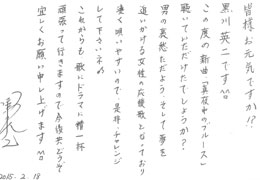 皆様お元気ですか!?
黒川英二です!!
この度の新曲「真夜中のブルース」
聴いていただけたでしょうか?
男の哀愁ただよう そして夢を
追いかける女性の応援歌となっており
凄く唄いやすいので 是非チャレンジ
して下さいネ!!
これからも 歌にドラマに精一杯
頑張って行きますので今後共どうぞ
宜しくお願い申し上げます!!
2015. 2. 18